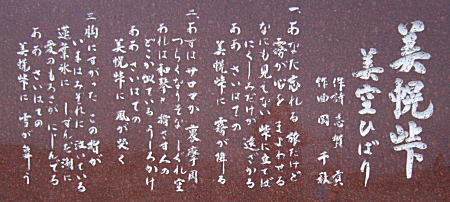 美幌峠
美空ひばり
作詩 志賀 貢
作曲 岡 千秋
一、あなた忘れる 旅だけど
霧が心を まよわせる
なにも見えない 峠に立てば
にくしみだけが 遠ざかる
ああ さいはての
美幌峠に 霧が降る
二、あすはサロマか 裏摩周
つらくなりそな しぐれ空
あれは和琴と 指さす人の
どこか似ている うしろかげ
ああ さいはての
美幌峠に 風が哭く
三、胸にすがった この指が
いまはみぞれに 泣いている
蓮葉氷に しずんだ湖に
愛のもろさが にじんでる
ああ さいはての
美幌峠に 雪が舞う